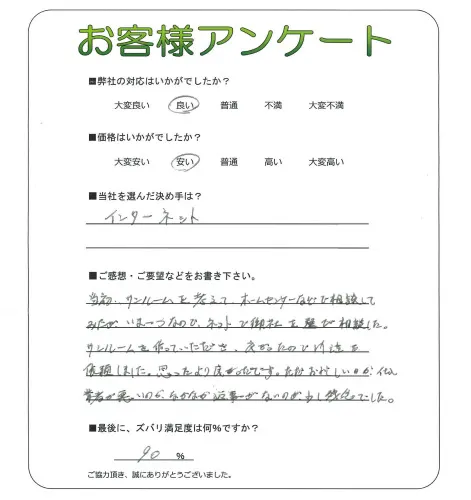 お客様アンケート
■弊社の対応はいかがでしたか？
大変良い 良い 普通 不満 大変不満
■価格はいかがでしたか？
大変安い 安い 普通 高い 大変高い
■当社を選んだ決め手は？
インターネット
■ご感想・ご要望などをお書き下さい。
当初、サンルームを考えて、ホームセンターなどで相談して
みたが いま一つなので、ネットで御社を 相談した。
サンルームを作っていただき、良かったので を
依頼しました。思ったより良かったです。ただ
業者が悪いのか、なかなか返事がないのが少し残念でした。
■最後に、ズバリ満足度は何%ですか？
90 %
ご協力頂き、誠にありがとうございました。